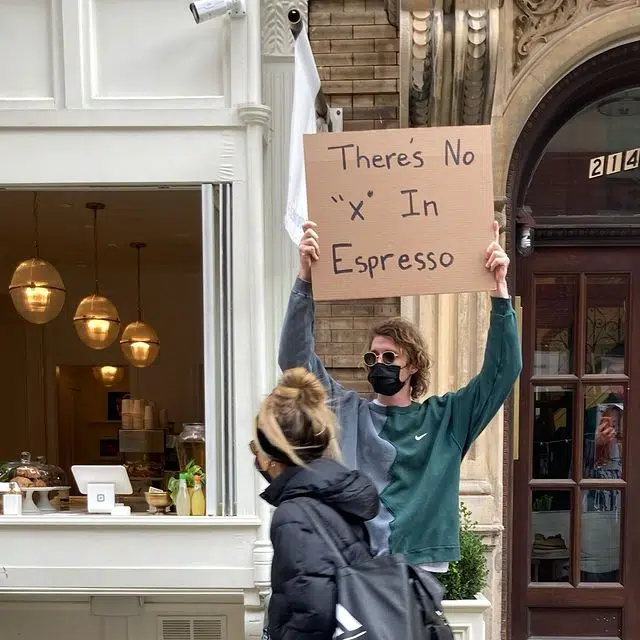 There's No
"x" In
Espresso
214